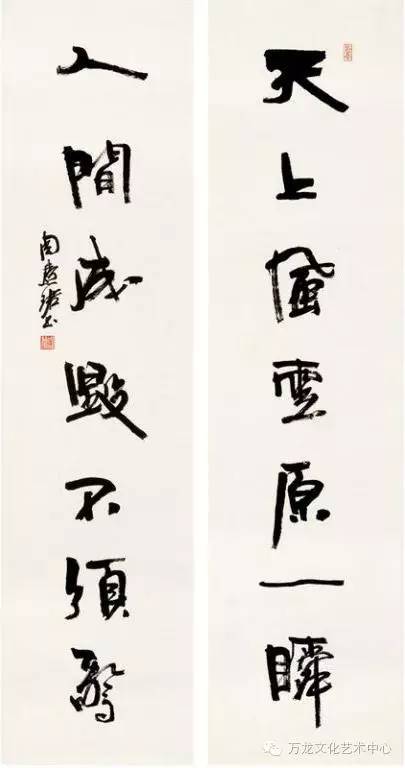 天上風雲原一瞬
人間成毀不須驚
周慧珺书
万龙文化艺术中心